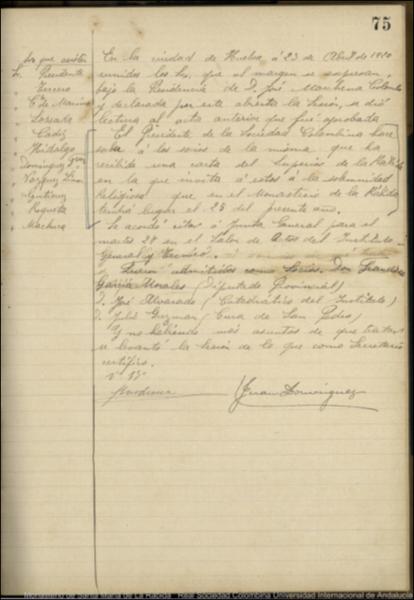 75
Sres que asisten
Sr. Presidente
Terrero
C de Marina
Losada
Cadiz
Hidalgo
Dominguez
Vazquez
Gutierrez
Roqueta
Marchena
En la ciudad de Huelva, á 23 de Abril de 1910
reunidos los Srs. que al margen se expresan,
bajo la Presidencia de D. José Marchena Colombo
y declarada por este abierta la sesión, se dió
lectura al acta anterior que fué aprobada
El Presidente de la Sociedad Colombina hace
saber á los socios de la misma que ha
recibido una carta del Superior de la Rábida
en la que invita á estos á la solemnidad
Religiosa que en el Monasterio de la Rábida
tendrá lugar el 25 del presente año.
Se acordó citar á Junta General para el
martes 28 en el Salón de Actos del Instituto
General y Técnico.
Fueron admitidos como Socios. Don Francisco
García Morales (Diputado Provincial)
D. José Alvarado (Catedrático del Instituto)
D. Julio Guzmán (Cura de San Pedro)
Y no habiendo más asuntos de que tratar
se levantó la sesión de lo que como Secretario
certifico.
Vº Bº
Marchena Juan Dominguez
Monasterio de Santa María de La Rábida. Real Sociedad Colombina Universidad Internacional de Andalucía